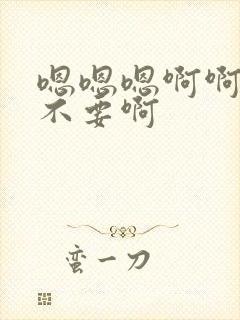 嗯嗯嗯啊啊
不要啊
蛮一刀